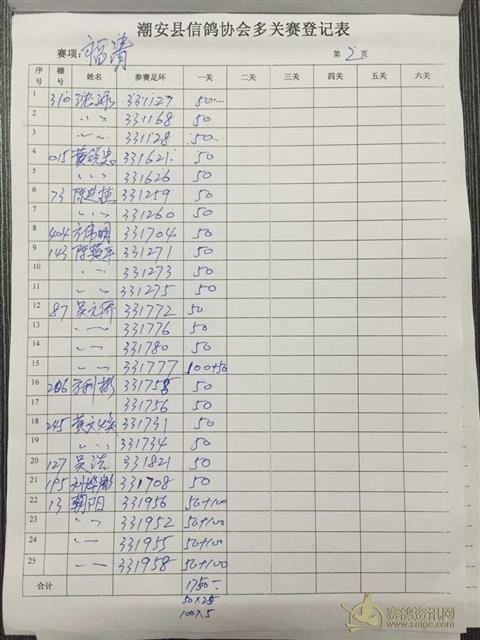 潮安县信鸽协会多关赛登记表
赛项: 福清 第 2 页
序号 棚号 姓名 参赛足环 一关 二关 三关 四关 五关 六关
1 310 331127 50
2 〃 331168 50
3 〃 331128 50
4 015 331621 50
5 〃 331626 50
6 73 331259 50
7 〃 331260 50
8 404 方伟明 331704 50
9 143 331271 50
10 〃 331273 50
11 〃 331275 50
12 87 吴元侨 331772 50
13 〃 331776 50
14 〃 331780 50
15 〃 331777 100+50
16 206 331758 50
17 331756 50
18 245 331731 50
19 〃 331734 50
20 127 吴浩 331821 50
21 195 331708 50
22 13 朝阳 331956 50+100
23 〃 331952 50+100
24 〃 331955 50+100
25 〃 331958 50+100
合计 1750
50×25
100×5
赛鸽资讯网
www.saige.com